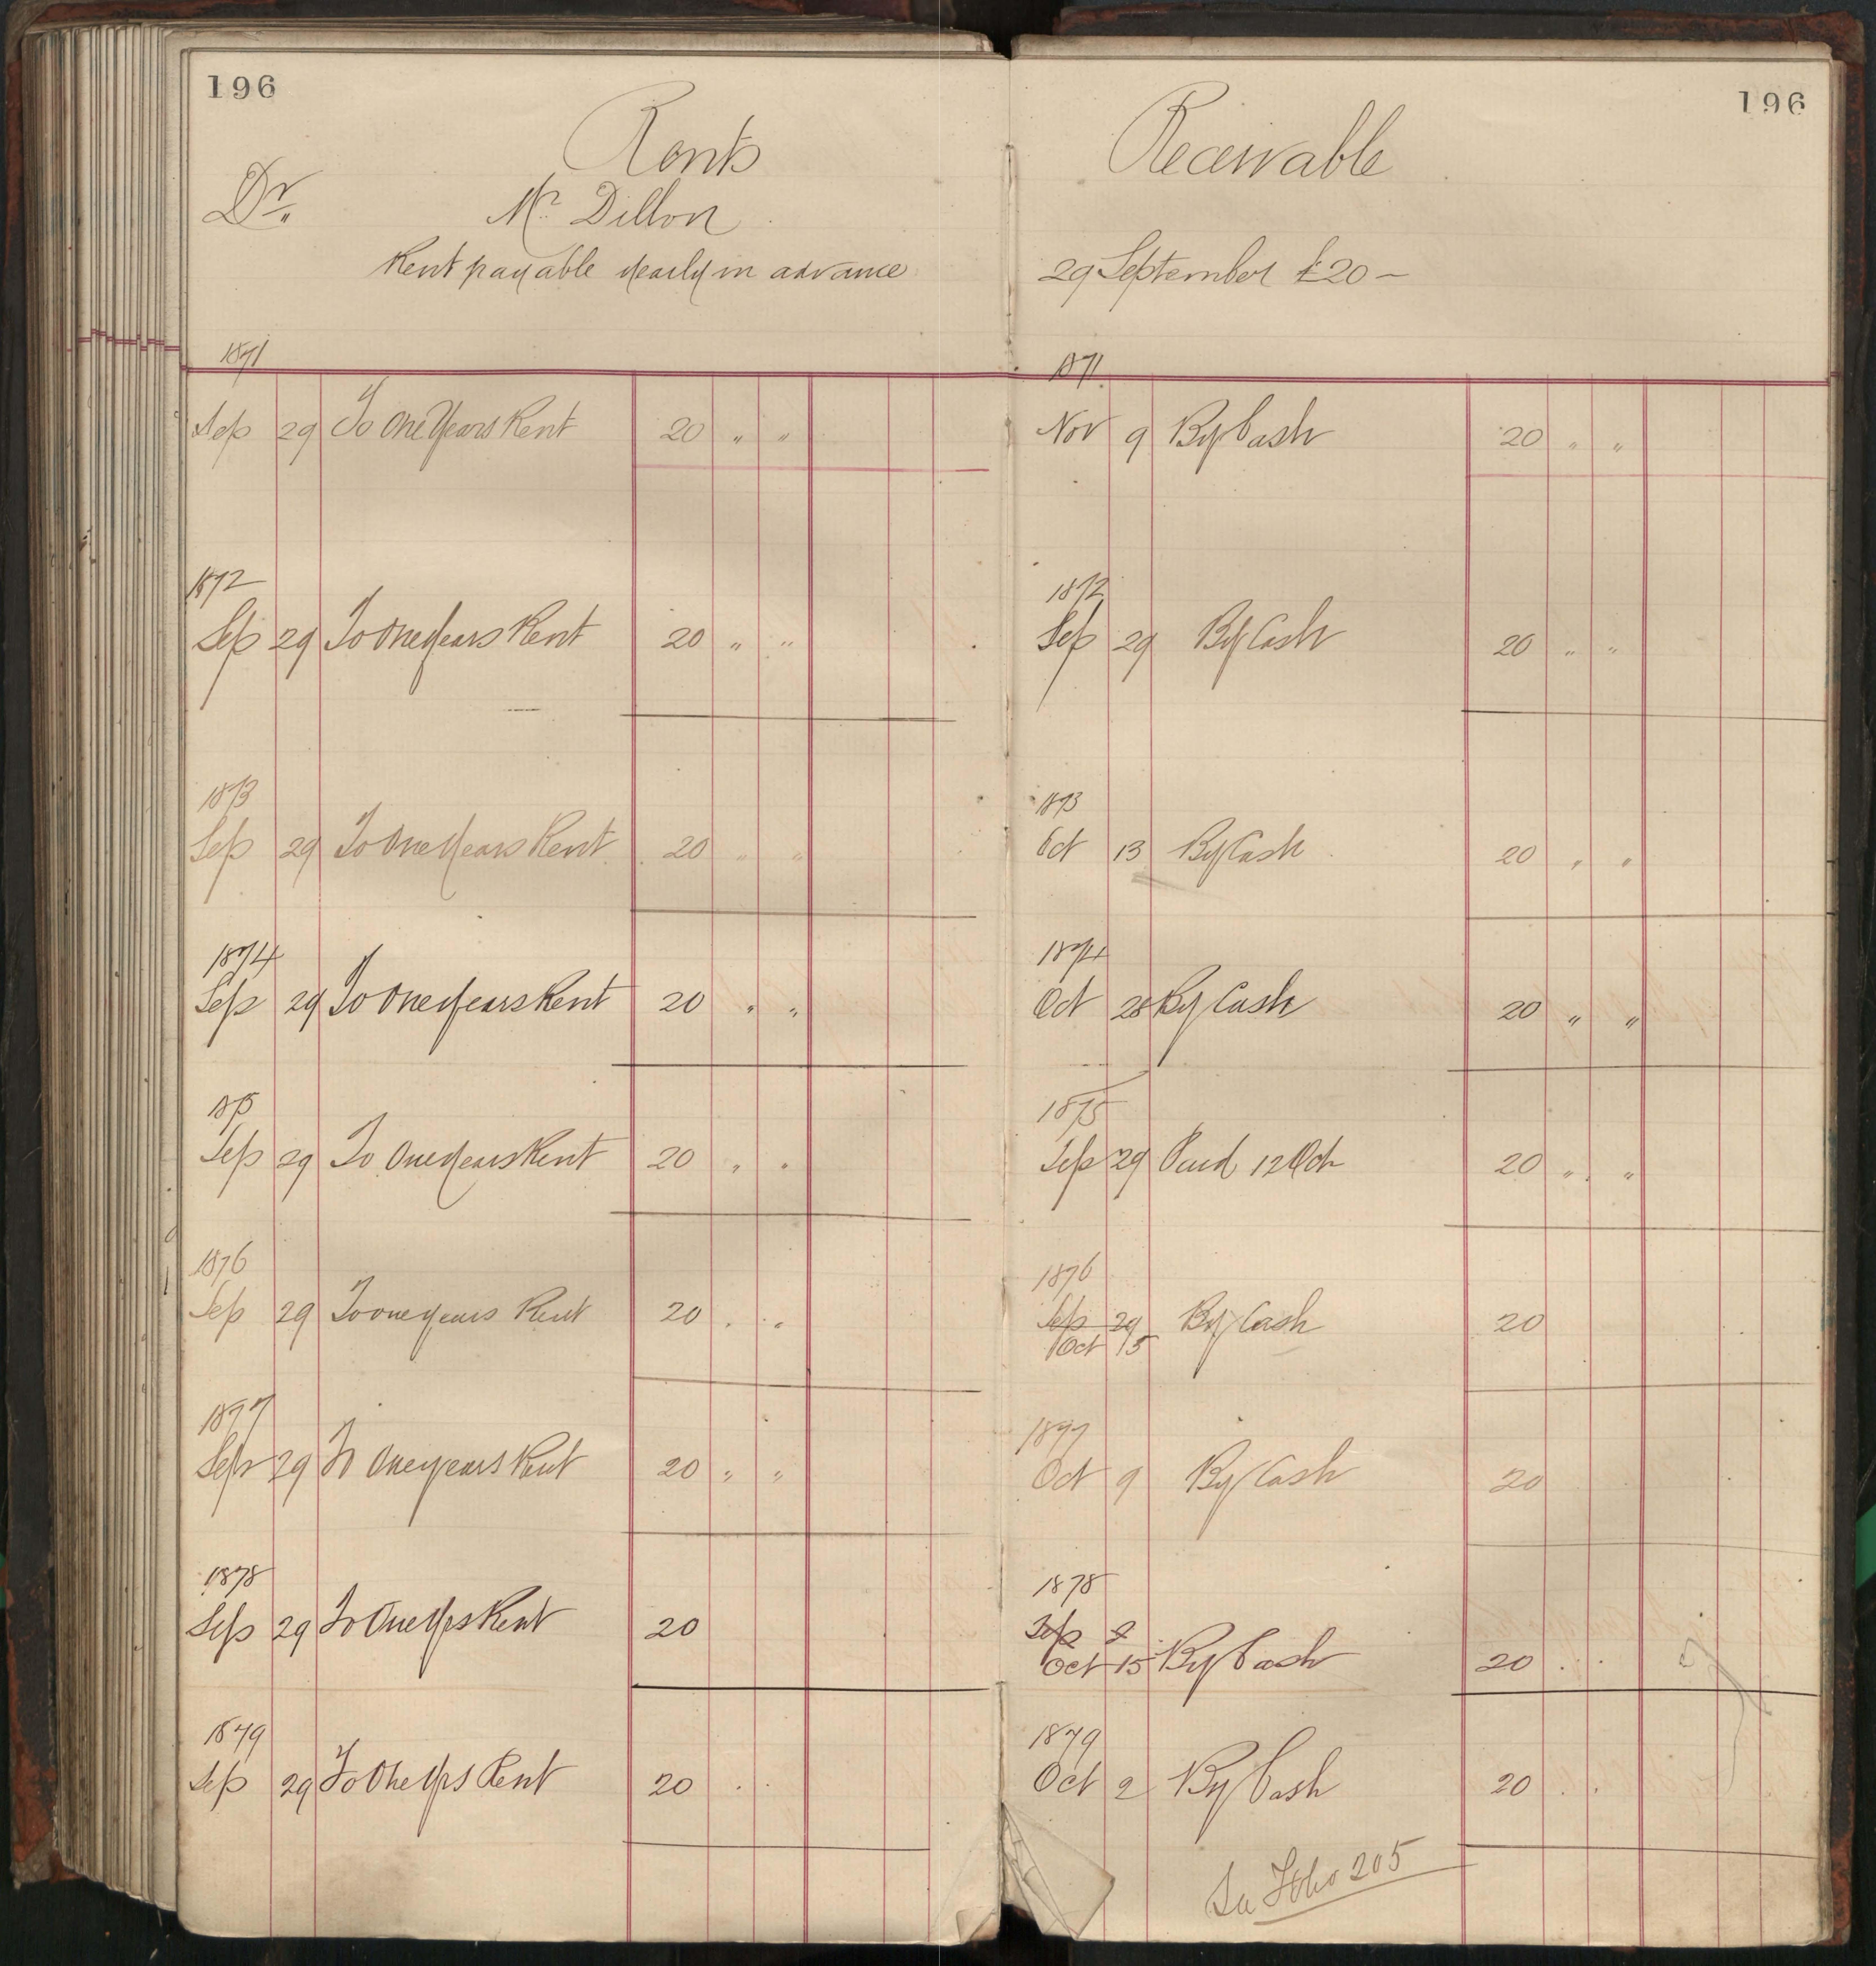 196
Rents
Dr.
Mr. Dillon
Rent payable yearly in advance
1871
Sep 29 To One Years Rent 20 " "
1872
Sep 29 To One Years Rent 20 " "
1873
Sep 29 To One Years Rent 20 " "
1874
Sep 29 To One Years Rent 20 " "
1875
Sep 29 To One Years Rent 20 " "
1876
Sep 29 To one years Rent 20 . "
1877
Sep 29 To One years Rent 20 " "
1878
Sep 29 To One Yrs Rent 20
1879
Sep 29 To One Yrs Rent 20 . .
196
Receivable
29 September £20 –
1871
Nov 9 By Cash 20 " "
1872
Sep 29 By Cash 20 " "
1873
Oct 13 By Cash 20 " "
1874
Oct 28 By Cash 20 " "
1875
Sep 29 Paid 12 Oct 20 " "
1876
Sep 29 By Cash 20
Oct 15
1877
Oct 9 By Cash 20
1878
Sep 2
Oct 15 By Cash 20 . .
1879
Oct 2 By Cash 20 . .
See Folio 205